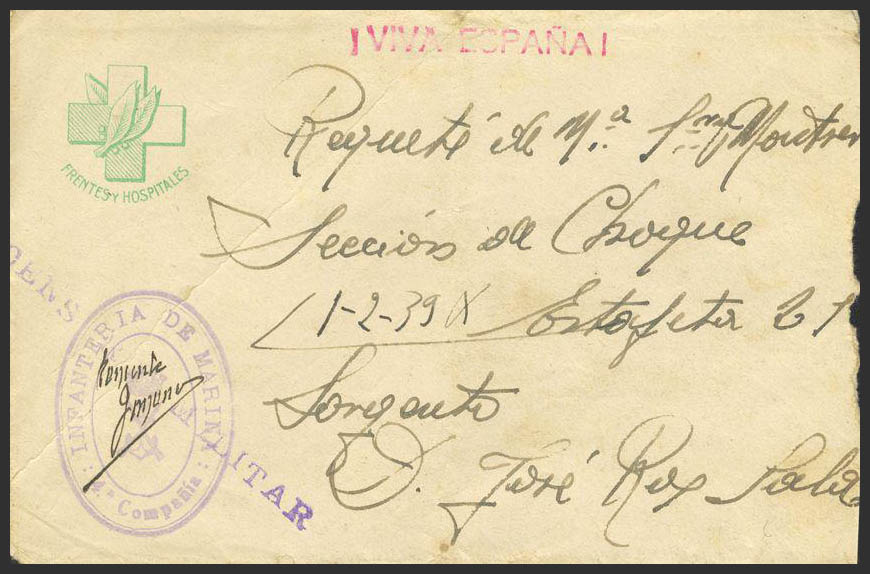 ¡VIVA ESPAÑA!
FRENTES Y HOSPITALES
Requeté de Nª. Sra Montser
Sección de Choque
1-2-39 Estafeta 21
Sargento
D. José Ros Sala
INFANTERIA DE MARINA
4ª Compañía
CENS ITAR
Teniente